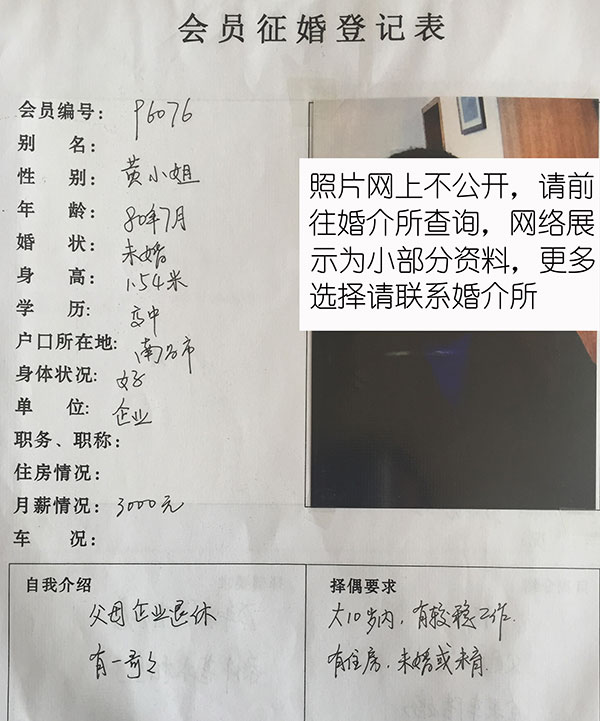 会员征婚登记表
会员编号: 96076
别 名:
性 别: 黄小姐
年 龄: 80年7月
婚 状: 未婚
身 高: 1.54米
学 历: 高中
户口所在地: 南昌市
身体状况: 好
单 位: 企业
职务、职称:
住房情况:
月薪情况: 3000元
车 况:
照片网上不公开，请前
往婚介所查询，网络展
示为小部分资料，更多
选择请联系婚介所
自我介绍
父母企业退休
有一哥哥
择偶要求
大10岁内，有较稳工作.
有住房，未婚或未育.